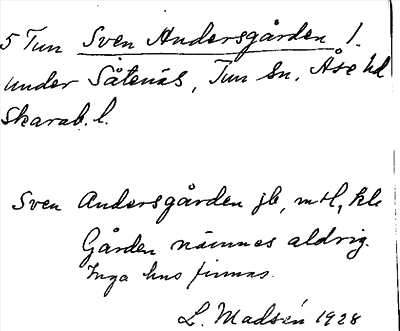 5 Tun Sven Andersgården 1.
under Såtenäs, Tun sn, Åse hd
Skarab. l.
Sven Andersgården jb, mtl, kle
Gården nämnes aldrig.
Inga hus finnas.
L. Madsén 1928